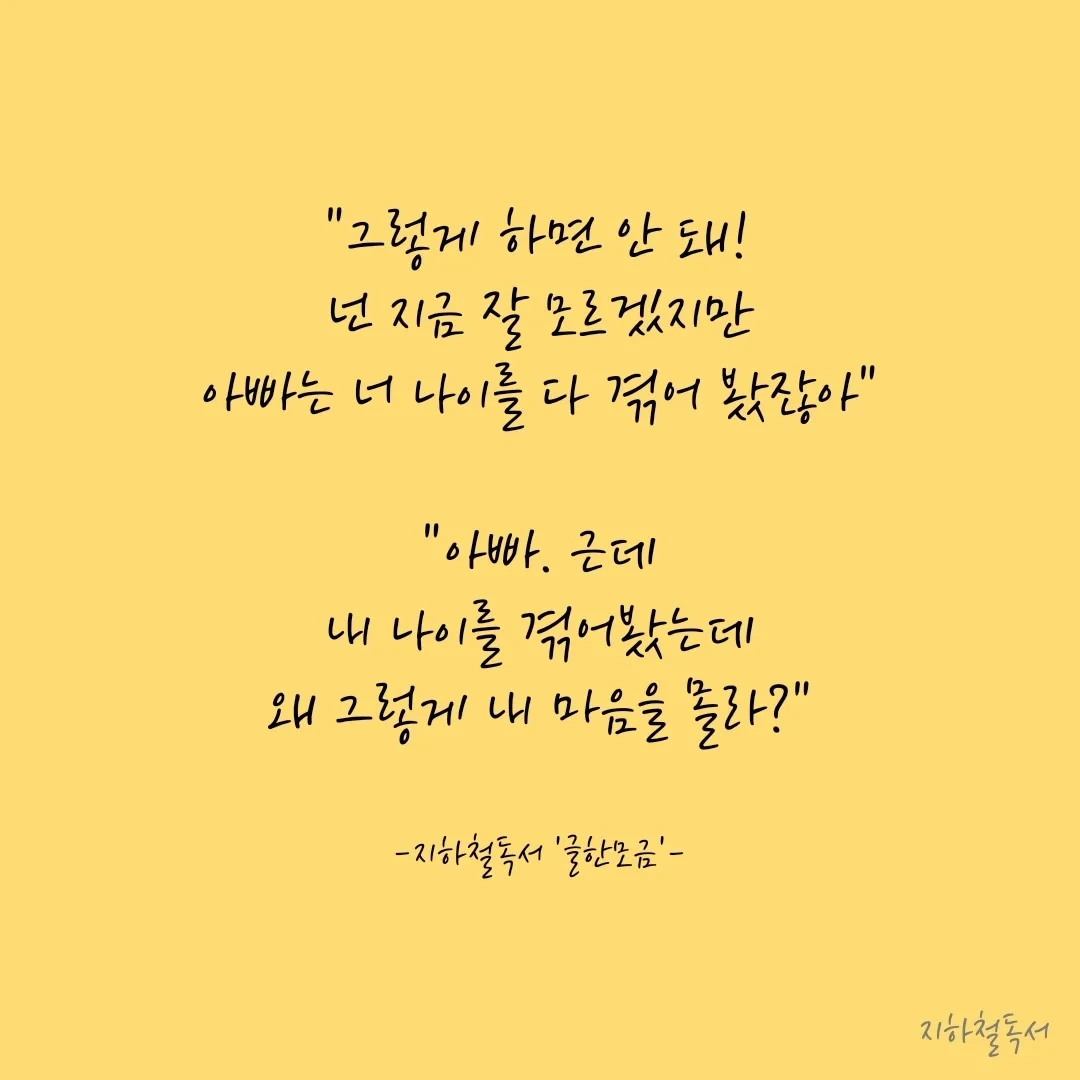 "그렇게 하면 안 돼!
넌 지금 잘 모르겠지만
아빠는 너 나이를 다 겪어 봤잖아"
"아빠. 근데
내 나이를 겪어봤는데
왜 그렇게 내 마음을 몰라?"
-지하철독서 '글한모금'-
지하철독서